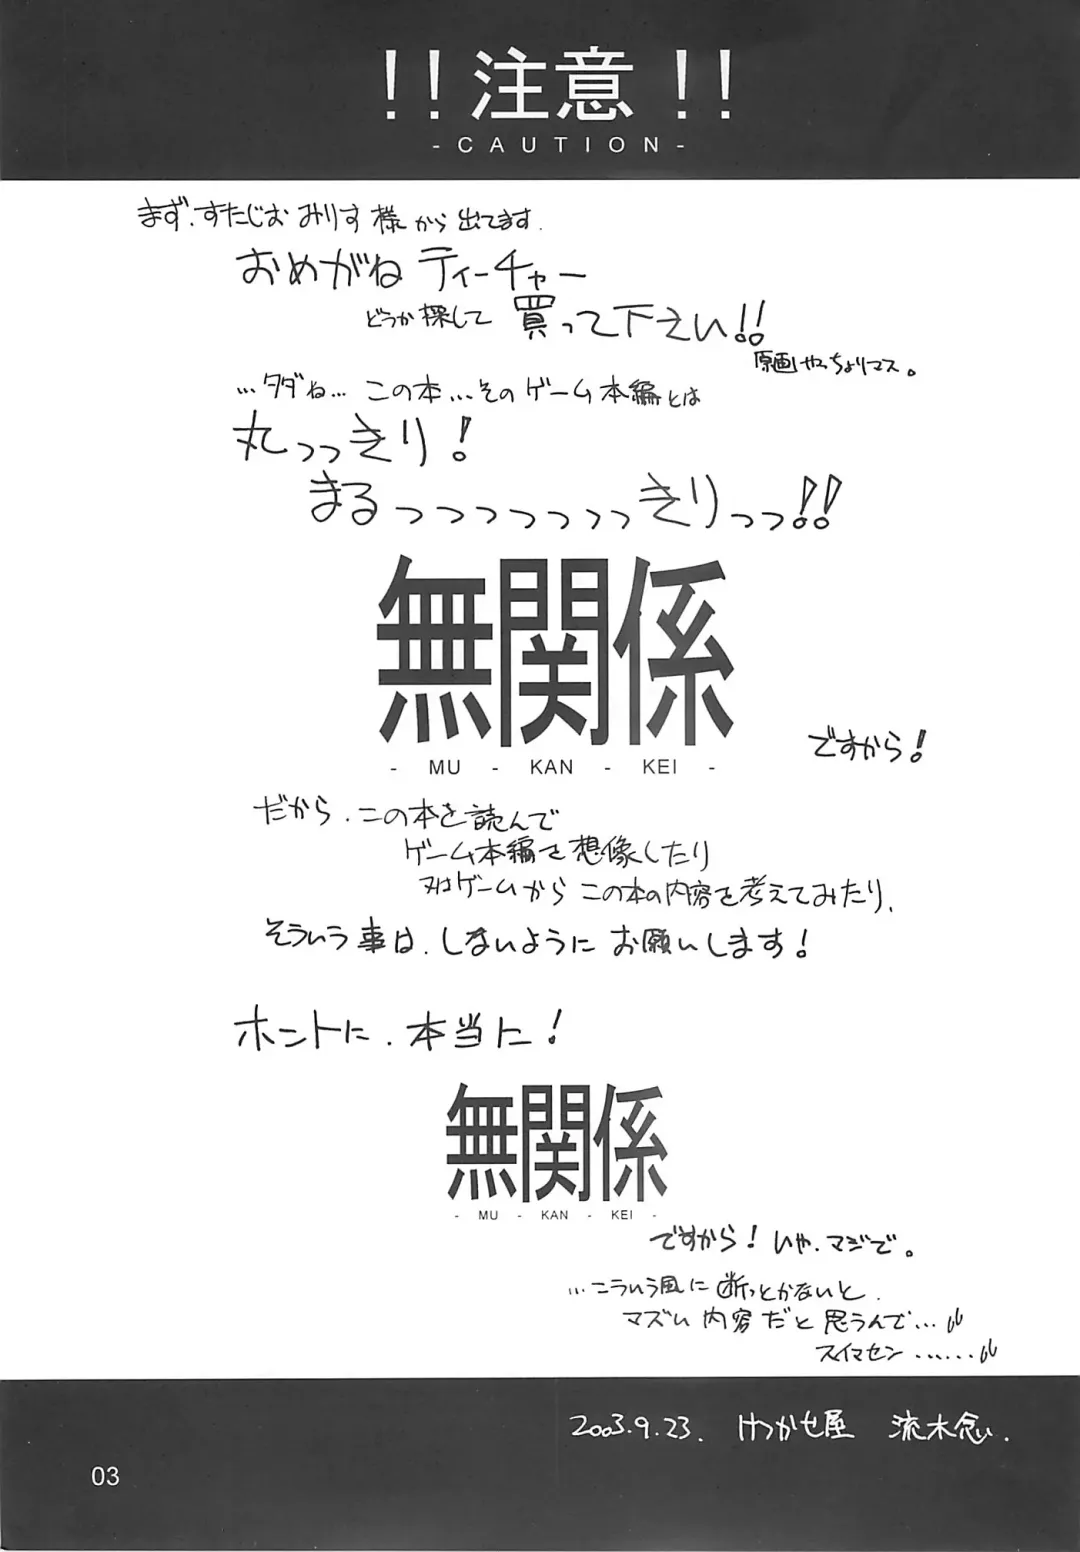 !!注意!!
- CAUTION -
まず、すたじおみりす様から出てます.
おめがねティーチャー
どうか探して買って下さい!!
原画やっちょりマス。
…タダね…この本…そのゲーム本編とは
丸っっきり!
まるっっっっっっっきりっっ!!
無関係
- MU - KAN - KEI -
ですから!
だから、この本を読んで
ゲーム本編を想像したり
又はゲームからこの本の内容を考えてみたり、
そういう事は、しないようにお願いします!
ホントに、本当に!
無関係
- MU - KAN - KEI -
ですから!いや、マジで。
…こういう風に断っとかないと、
マズい内容だと思うんで…
スイマセン……
2003.9.23. けつかせ屋 流木念い.
03